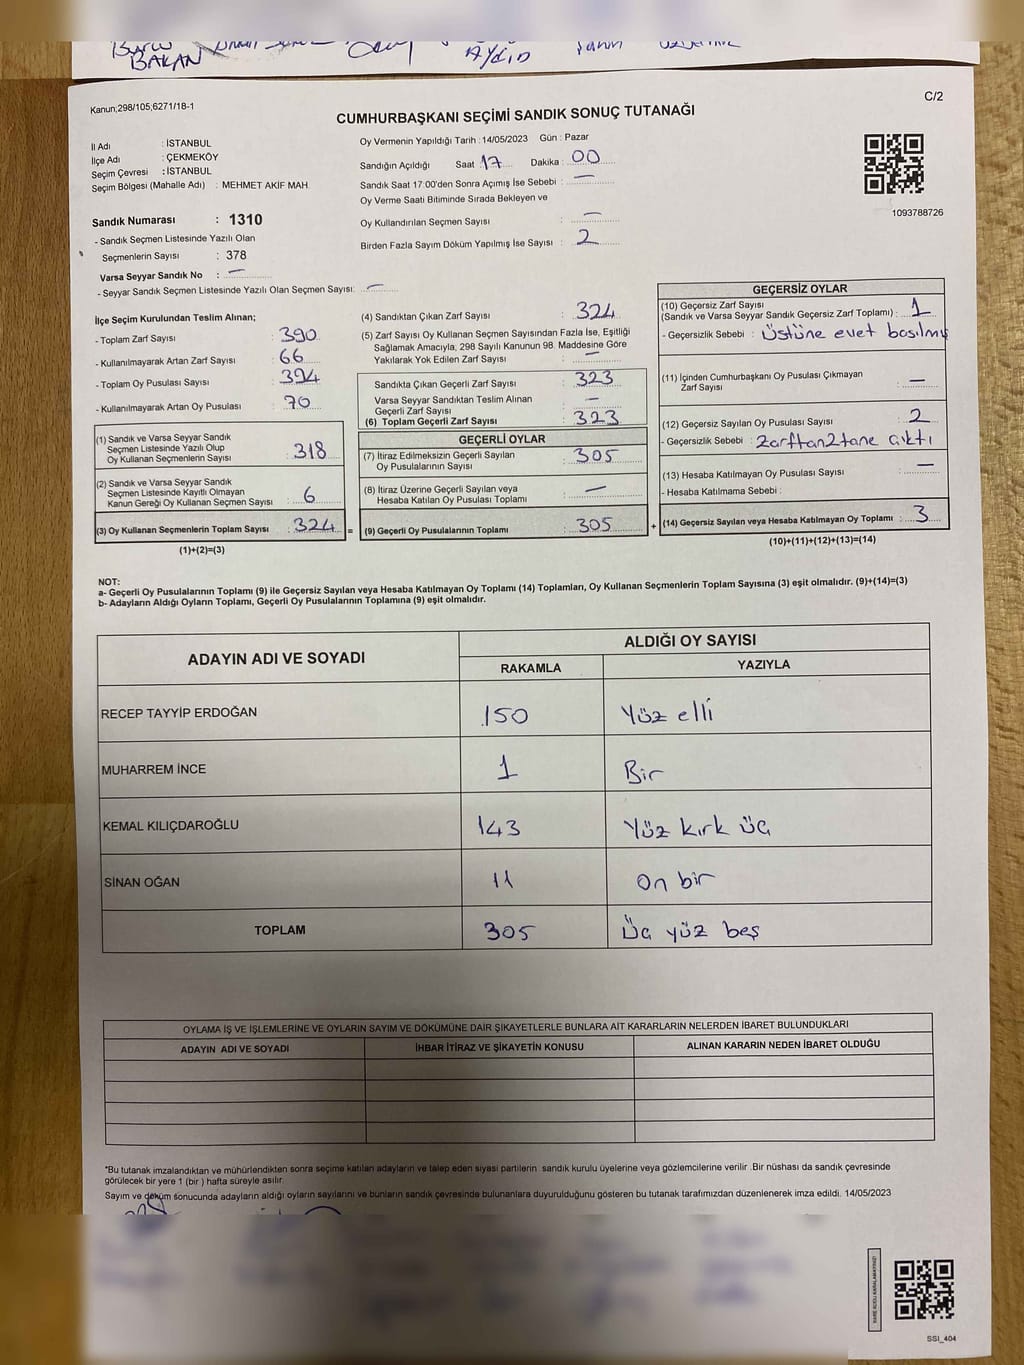 BAKAN
AYDIN
Kanun;298/105;6271/18-1
C/2
CUMHURBAŞKANI SEÇİMİ SANDIK SONUÇ TUTANAĞI
İl Adı : İSTANBUL
İlçe Adı : ÇEKMEKÖY
Seçim Çevresi : İSTANBUL
Seçim Bölgesi (Mahalle Adı) : MEHMET AKİF MAH.
Oy Vermenin Yapıldığı Tarih : 14/05/2023 Gün : Pazar
Sandığın Açıldığı Saat 17 Dakika : 00
Sandık Saat 17:00'den Sonra Açımış İse Sebebi : —
Oy Verme Saati Bitiminde Sırada Bekleyen ve
Oy Kullandırılan Seçmen Sayısı : —
Birden Fazla Sayım Döküm Yapılmış İse Sayısı : 2
1093788726
Sandık Numarası : 1310
- Sandık Seçmen Listesinde Yazılı Olan
Seçmenlerin Sayısı : 378
Varsa Seyyar Sandık No : —
- Seyyar Sandık Seçmen Listesinde Yazılı Olan Seçmen Sayısı: —
İlçe Seçim Kurulundan Teslim Alınan;
- Toplam Zarf Sayısı : 390
- Kullanılmayarak Artan Zarf Sayısı : 66
- Toplam Oy Pusulası Sayısı : 394
- Kullanılmayarak Artan Oy Pusulası : 70
(1) Sandık ve Varsa Seyyar Sandık
Seçmen Listesinde Yazılı Olup
Oy Kullanan Seçmenlerin Sayısı : 318
(2) Sandık ve Varsa Seyyar Sandık
Seçmen Listesinde Kayıtlı Olmayan
Kanun Gereği Oy Kullanan Seçmen Sayısı : 6
(3) Oy Kullanan Seçmenlerin Toplam Sayısı : 324 =
(1)+(2)=(3)
(4) Sandıktan Çıkan Zarf Sayısı : 324
(5) Zarf Sayısı Oy Kullanan Seçmen Sayısından Fazla İse, Eşitliği
Sağlamak Amacıyla, 298 Sayılı Kanunun 98. Maddesine Göre
Yakılarak Yok Edilen Zarf Sayısı : —
Sandıkta Çıkan Geçerli Zarf Sayısı : 323
Varsa Seyyar Sandıktan Teslim Alınan
Geçerli Zarf Sayısı : —
(6) Toplam Geçerli Zarf Sayısı : 323
GEÇERLİ OYLAR
(7) İtiraz Edilmeksizin Geçerli Sayılan
Oy Pusulalarının Sayısı : 305
(8) İtiraz Üzerine Geçerli Sayılan veya
Hesaba Katılan Oy Pusulası Toplamı : —
(9) Geçerli Oy Pusulalarının Toplamı : 305 +
GEÇERSİZ OYLAR
(10) Geçersiz Zarf Sayısı
(Sandık ve Varsa Seyyar Sandık Geçersiz Zarf Toplamı) : 1
- Geçersizlik Sebebi : Üstüne evet basılmış
(11) İçinden Cumhurbaşkanı Oy Pusulası Çıkmayan
Zarf Sayısı : —
(12) Geçersiz Sayılan Oy Pusulası Sayısı : 2
- Geçersizlik Sebebi : Zarftan 2 tane çıktı
(13) Hesaba Katılmayan Oy Pusulası Sayısı : —
- Hesaba Katılmama Sebebi :
(14) Geçersiz Sayılan veya Hesaba Katılmayan Oy Toplamı : 3
(10)+(11)+(12)+(13)=(14)
NOT:
a- Geçerli Oy Pusulalarının Toplamı (9) ile Geçersiz Sayılan veya Hesaba Katılmayan Oy Toplamı (14) Toplamları, Oy Kullanan Seçmenlerin Toplam Sayısına (3) eşit olmalıdır. (9)+(14)=(3)
b- Adayların Aldığı Oyların Toplamı, Geçerli Oy Pusulalarının Toplamına (9) eşit olmalıdır.
ADAYIN ADI VE SOYADI ALDIĞI OY SAYISI
RAKAMLA YAZIYLA
RECEP TAYYİP ERDOĞAN 150 Yüz elli
MUHARREM İNCE 1 Bir
KEMAL KILIÇDAROĞLU 143 Yüz kırk üç
SİNAN OĞAN 11 On bir
TOPLAM 305 Üç yüz beş
OYLAMA İŞ VE İŞLEMLERİNE VE OYLARIN SAYIM VE DÖKÜMÜNE DAİR ŞİKAYETLERLE BUNLARA AİT KARARLARIN NELERDEN İBARET BULUNDUKLARI
ADAYIN ADI VE SOYADI İHBAR İTİRAZ VE ŞİKAYETİN KONUSU ALINAN KARARIN NEDEN İBARET OLDUĞU
"Bu tutanak imzalandıktan ve mühürlendikten sonra seçime katılan adayların ve talep eden siyasi partilerin sandık kurulu üyelerine veya gözlemcilerine verilir .Bir nüshası da sandık çevresinde
görülecek bir yere 1 (bir ) hafta süreyle asılır.
Sayım ve döküm sonucunda adayların aldığı oyların sayılarını ve bunların sandık çevresinde bulunanlara duyurulduğunu gösteren bu tutanak tarafımızdan düzenlenerek imza edildi. 14/05/2023
SSI_404